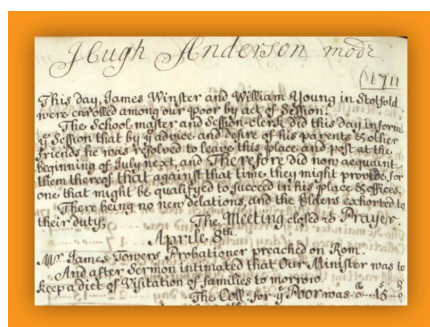 J Hugh Anderson modr
(1711
This day, James Winster and William Young in Stotfold
were enrolled among our poor by act of Session.
The School-master and Session-clerk did this day inform
yͤ Session that by yͤ advice and desire of his parents & other
friends he was resolved to leave this place and post at the
beginning of July next, and Therefore did now acquaint
them thereof that against that time they might provide for
one that might be qualified to succeed in his place & offices.
There being no new delations, and the Elders exhorted to
their duty; The Meeting closed wͭ Prayer
Aprile 8th
Mr James Towers Probationer preached on Rom.
And after Sermon intimated that Our Minister was to
keep a diet of Visitation of families to morrow.
The Coll: for yͤ Poor was 0 15 0